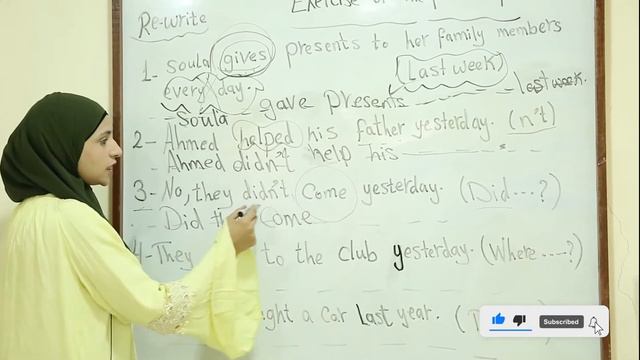 Exercise
Re-write
1- Soula gives presents to her family members
every day. (Last week)
Soula gave presents last week.
2- Ahmed helped his father yesterday. (n't)
Ahmed didn't help his
3- No, they didn't come yesterday. (Did....?)
Did come
4- They to the club yesterday. (Where ....?)
a car last year.
Subscribed